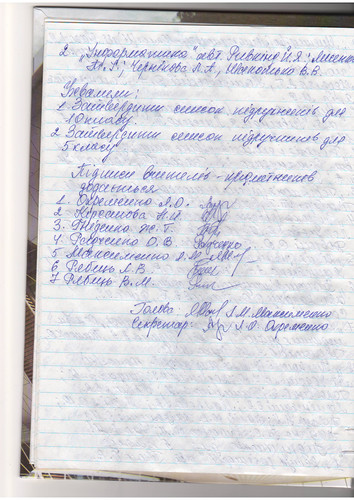 2. „Інформатика" авт. Ривкінд Й.Я.; Лисенко
Т.І.; Чернікова Л.А., Шакотько В.В.
Ухвалили:
1. Затвердити список підручників для
10 класу.
2. Затвердити список підручників для
5 класу
Підписи вчителів-предметників
додаються
1. Охременко Л.О.
2.
3. Т.
4. О.В.
5. Максименко Л.М.
6 Рябець Л.В.
7 Рябець В.М.
Голова Л.М. Максименко
Секретар: Л.О. Охременко